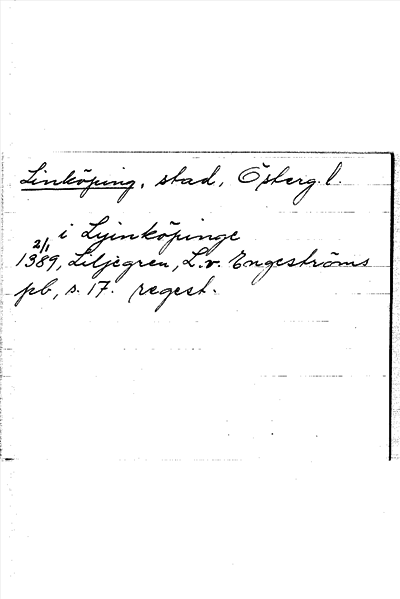 Linköping, stad, Österg. l.
i Lyinköpinge
2/1
1389, Liljegren, L. v. Engeströms
pb, s. 17. regest.